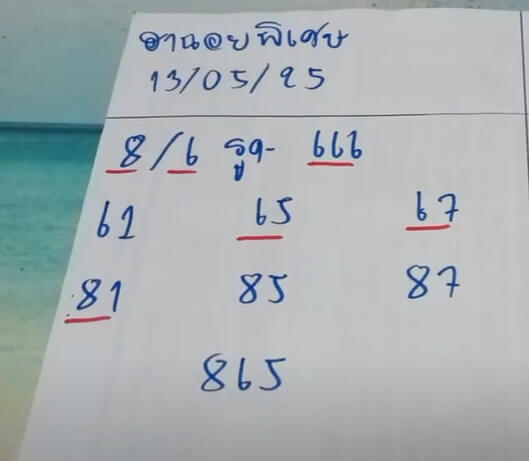 ฮานอยพิเศษ
13/05/25
8/6 รูด- 666
61 65 67
81 85 87
865